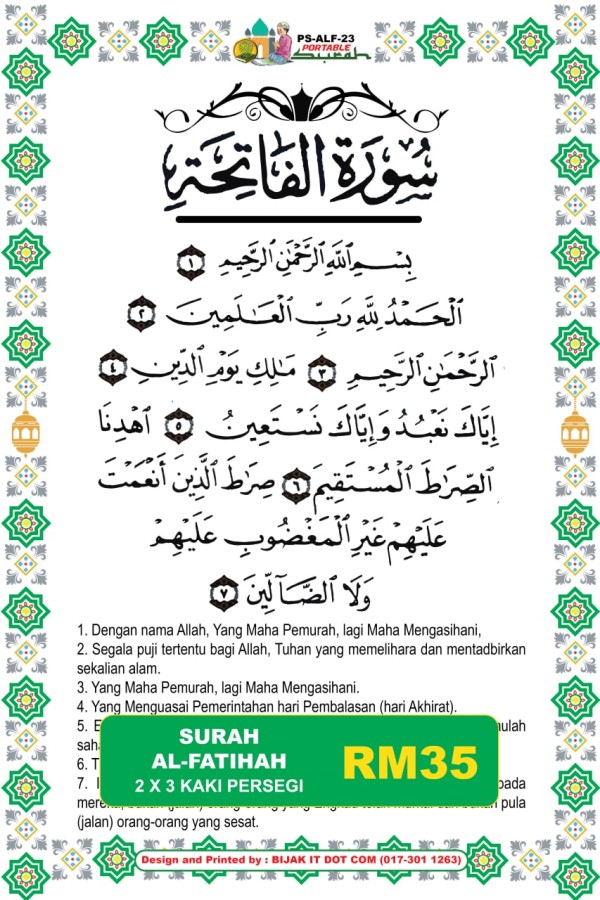 PS-ALF-23
PORTABLE
Surah
سُورَةُ الْفَاتِحَةِ
بِسْمِ ٱللَّهِ ٱلرَّحْمَٰنِ ٱلرَّحِيمِ ١
ٱلْحَمْدُ لِلَّهِ رَبِّ ٱلْعَٰلَمِينَ ٢
ٱلرَّحْمَٰنِ ٱلرَّحِيمِ ٣ مَٰلِكِ يَوْمِ ٱلدِّينِ ٤
إِيَّاكَ نَعْبُدُ وَإِيَّاكَ نَسْتَعِينُ ٥ ٱهْدِنَا
ٱلصِّرَٰطَ ٱلْمُسْتَقِيمَ ٦ صِرَٰطَ ٱلَّذِينَ أَنْعَمْتَ
عَلَيْهِمْ غَيْرِ ٱلْمَغْضُوبِ عَلَيْهِمْ
وَلَا ٱلضَّآلِّينَ ٧
1. Dengan nama Allah, Yang Maha Pemurah, lagi Maha Mengasihani,
2. Segala puji tertentu bagi Allah, Tuhan yang memelihara dan mentadbirkan
sekalian alam.
3. Yang Maha Pemurah, lagi Maha Mengasihani.
4. Yang Menguasai Pemerintahan hari Pembalasan (hari Akhirat).
5.
6.
7.
(jalan) orang-orang yang sesat.
SURAH
AL-FATIHAH
2 X 3 KAKI PERSEGI
RM35
Design and Printed by : BIJAK IT DOT COM (017-301 1263)